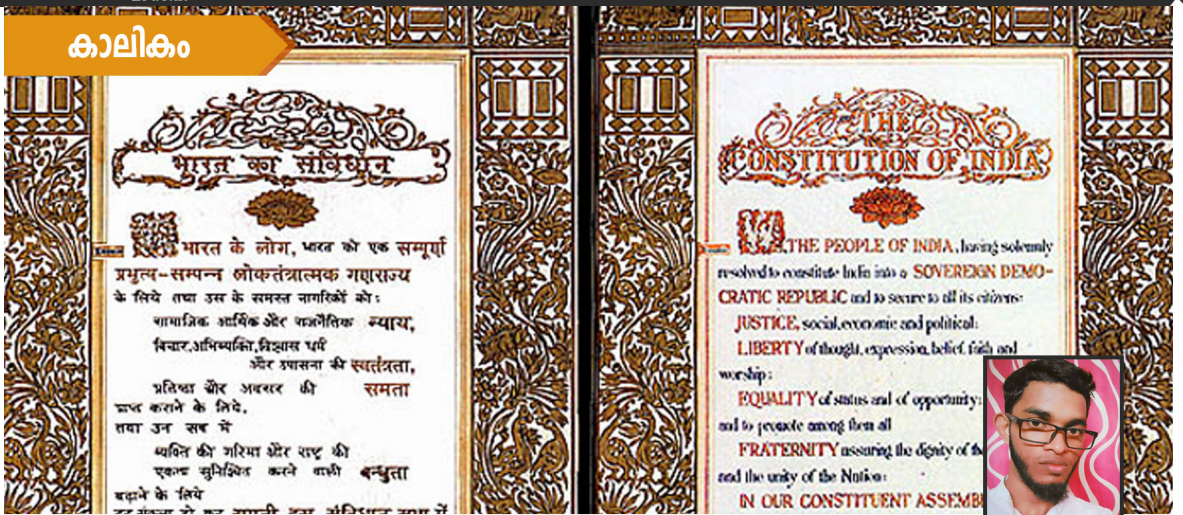 കാലികം
भारत का संविधान
भारत के लोग, भारत को एक सम्पूर्ण
प्रभुत्व-सम्पन्न लोकतंत्रात्मक गणराज्य
के लिये तथा उस के समस्त नागरिकों को:
सामाजिक आर्थिक और राजनैतिक न्याय,
विचार, अभिव्यक्ति, विश्वास धर्म
और उपासना की स्वतंत्रता,
प्रतिष्ठा और अवसर की समता
प्राप्त कराने के लिये,
तथा उन सब में
व्यक्ति की गरिमा और राष्ट्र की
एकता सुनिश्चित करने वाली बन्धुता
बढ़ाने के लिये
THE
CONSTITUTION OF INDIA
WE, THE PEOPLE OF INDIA, having solemnly
resolved to constitute India into a SOVEREIGN DEMO-
CRATIC REPUBLIC and to secure to all its citizens:
JUSTICE, social, economic and political;
LIBERTY of thought, expression, belief, faith and
worship;
EQUALITY of status and of opportunity;
and to promote among them all
FRATERNITY assuring the dignity of the
and the unity of the Nation;
IN OUR CONSTITUENT ASSEMB